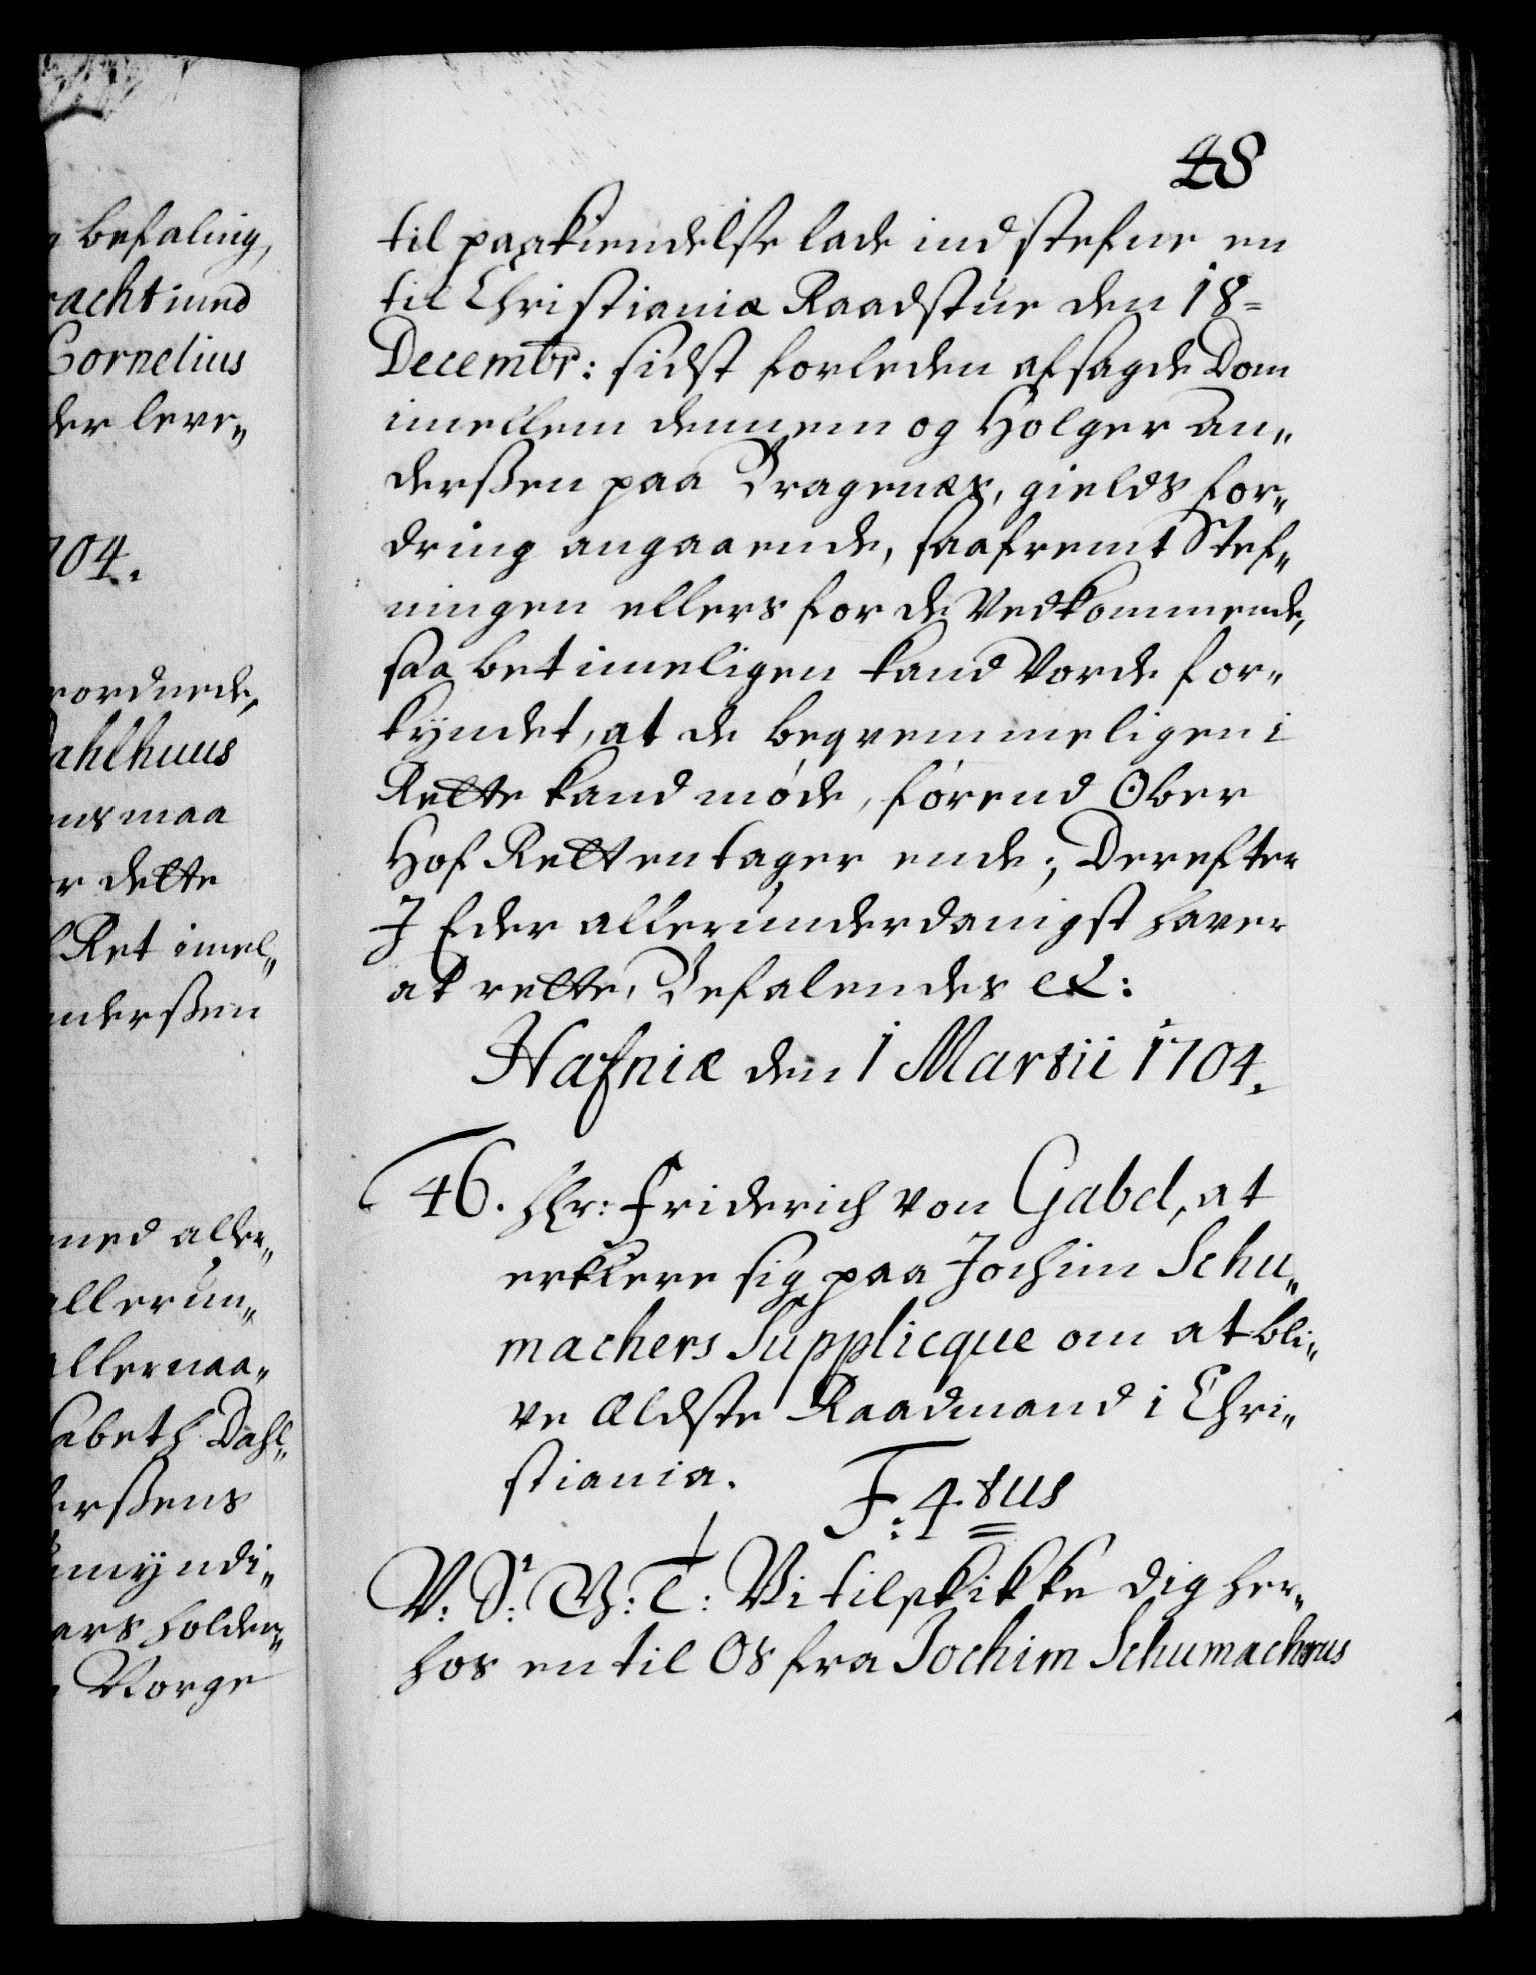 g befaling,
achtiund
Cornelius
der leve„
704.
rordnede,
dahlhuus
maa
er dette
Ret imel„
nderßen
med aller„
allerun„
allernaa„
sabeth Dahl„
derßens
myndi„
ers holden„
Norge
48
til paakiendelse lade ind stefne en
til Christianiæ Raadstue den 18=
Decembr: sidst forleden afsagde Dom
imellem dennem og Holger An„
derßen paa Bragenæs, gields for„
dring angaaende, saafremt Stef„
ningen ellers for de Vedkommende,
saa betimeligen kand Vorde for„
kyndet, at de beqvemmeligen i
Rette kand møde, førend Ober
Hof Retten tager ende; Derefter
I Eder allerunderdanigst haver
at rette, Befalendes etc:
Hafniæ den 1 Martii 1704.
46. Hr: Friderich von Gabel, at
erklere sig paa Jochim Schu„
machers Supplicque om at bli„
ve Ældste Raadmand i Chri„
stiania.
F: 4.tus
V: S: G: T: Vi tilskikke dig her„
hos en til Os fra Jochim Schumacherus